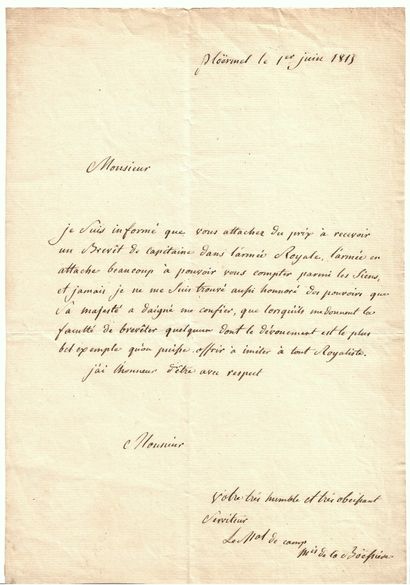 Ploërmel le 1er juin 1815
Monsieur
je suis informé que vous attachez du prix à recevoir
un Brevêt de capitaine dans l'armée Royale, l'armée en
attache beaucoup à pouvoir vous compter parmi les siens,
et jamais je ne me suis trouvé aussi honnoré des pouvoirs que
Sa majesté a daigné me confier, que lorsqu'ils me donnent la
faculté de brevêter quelqu'un dont le dévouement est le plus
bel exemple qu'on puisse offrir à imiter à tout Royaliste.
j'ai l'honneur d'être avec respect
Monsieur
Votre très humble et très obéissant
Serviteur
Le Mal de camp
Mis de la Boëssière